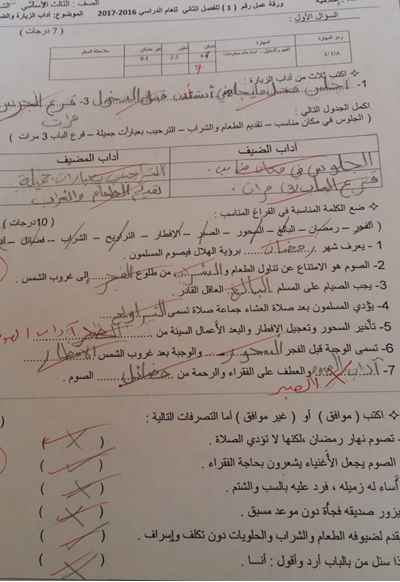 الصف : الثالث الأساسي
ورقة عمل رقم ( 1 ) للفصل الثاني للعام الدراسي 2016-2017 الموضوع: آداب الزيارة
السؤال الأول :
( 7 درجات )
رمز المهارة المهارة متمكن غير متمكن ملاحظة المعلم
الفهم والتحليل
7
❖ اكتب ثلاث من آداب الزيارة :
1- أجلس قبل الدخول 3- قرع الجرس
مرات
أكمل الجدول التالي :
( الجلوس في مكان مناسب – تقديم الطعام والشراب – الترحيب بعبارات جميلة – قرع الباب 3 مرات )
آداب الضيف آداب المضيف
الجلوس في مكان مناسب . الترحيب بعبارات جميلة
قرع الباب (3) مرات . تقديم الطعام والشراب
❖ ضع الكلمة المناسبة في الفراغ المناسب : ( 10 درجات )
( الفجر – رمضان – البالغ – السحور – الصبر – الإفطار – التراويح – الشراب – فضائل –
1 - يعرف شهر رمضان برؤية الهلال فيصوم المسلمون .
2- الصوم هو الامتناع عن تناول الطعام والشراب من طلوع الفجر إلى غروب الشمس .
3- يجب الصيام على المسلم البالغ العاقل القادر .
4- يؤدي المسلمون بعد صلاة العشاء جماعة صلاة تسمى التراويح
5- تأخير السحور وتعجيل الإفطار والبعد الأعمال السيئة من آداب
6- تسمى الوجبة قبل الفجر السحور والوجبة بعد غروب الشمس الإفطار
7- آداب والعطف على الفقراء والرحمة من فضائل الصوم .
الصبر
❖ اكتب ( موافق ) أو ( غير موافق ) أما التصرفات التالية :
تصوم نهار رمضان ,لكنها لا تؤدي الصلاة . ( )
الصوم يجعل الأغنياء يشعرون بحاجة الفقراء . ( )
أساء له زميله , فرد عليه بالسب والشتم . ( )
يزور صديقه فجأة دون موعد مسبق . ( )
يقدم لضيوفه الطعام والشراب والحلويات دون تكلف وإسراف . ( )
إذا سئل من بالباب أرد وأقول : أنـــا . ( )